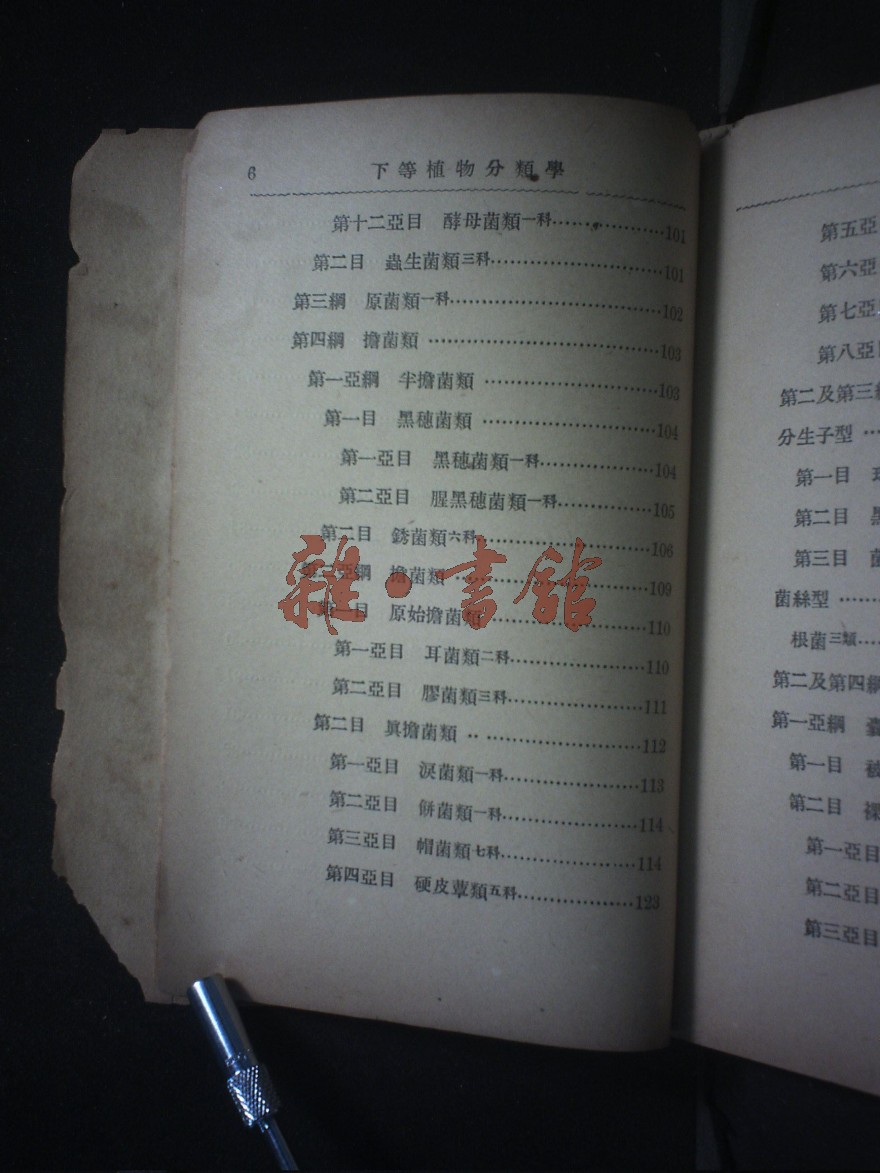 6 下等植物分類學
第十二亞目 酵母菌類一科…………………101
第二目 蟲生菌類三科…………………………101
第三綱 原菌類一科……………………………102
第四綱 擔菌類 …………………………………103
第一亞綱 半擔菌類 ……………………………103
第一目 黑穗菌類 ………………………………104
第一亞目 黑穗菌類一科………………………104
第二亞目 腥黑穗菌類一科……………………105
第二目 銹菌類六科……………………………106
第二亞綱 擔菌類 ………………………………109
第一目 原始擔菌類 ……………………………110
第一亞目 耳菌類二科…………………………110
第二亞目 膠菌類三科…………………………111
第二目 眞擔菌類 ………………………………112
第一亞目 淚菌類一科…………………………113
第二亞目 餅菌類一科…………………………114
第三亞目 帽菌類七科…………………………114
第四亞目 硬皮蕈類五科………………………123
雜·書館
第五亞
第六亞
第七亞
第八亞
第二及第三
分生子型 …
第一目
第二目
第三目
菌絲型 …
根菌三類…
第二及第四綱
第一亞綱
第一目
第二目
第一亞目
第二亞目
第三亞目